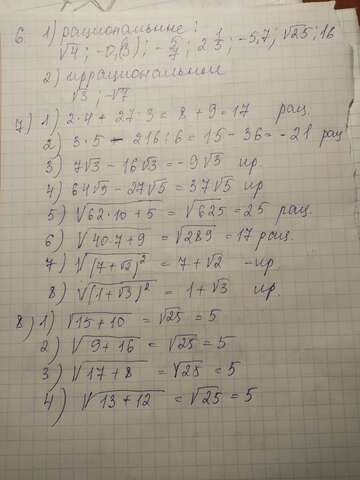 6. 1) рациональные:
√4; -0,(3); -5/7; 2 1/3; -5,7; √25; 16
2) иррациональные
√3; -√7
7) 1) 2·4 + 27·3 = 8 + 9 = 17 рац.
2) 3·5 - 216:6 = 15 - 36 = -21 рац
3) 7√3 - 16√3 = -9√3 ир.
4) 64√5 - 27√5 = 37√5 ир
5) √(62·10+5) = √625 = 25 рац.
6) √(40·7+9) = √289 = 17 рац.
7) √((7+√3)²) = 7 + √2 - ир
8) √((1+√3)²) = 1+√3 ир.
8) 1) √(15+10) = √25 = 5
2) √(9+16) = √25 = 5
3) √(17+8) = √25 = 5
4) √(13+12) = √25 = 5